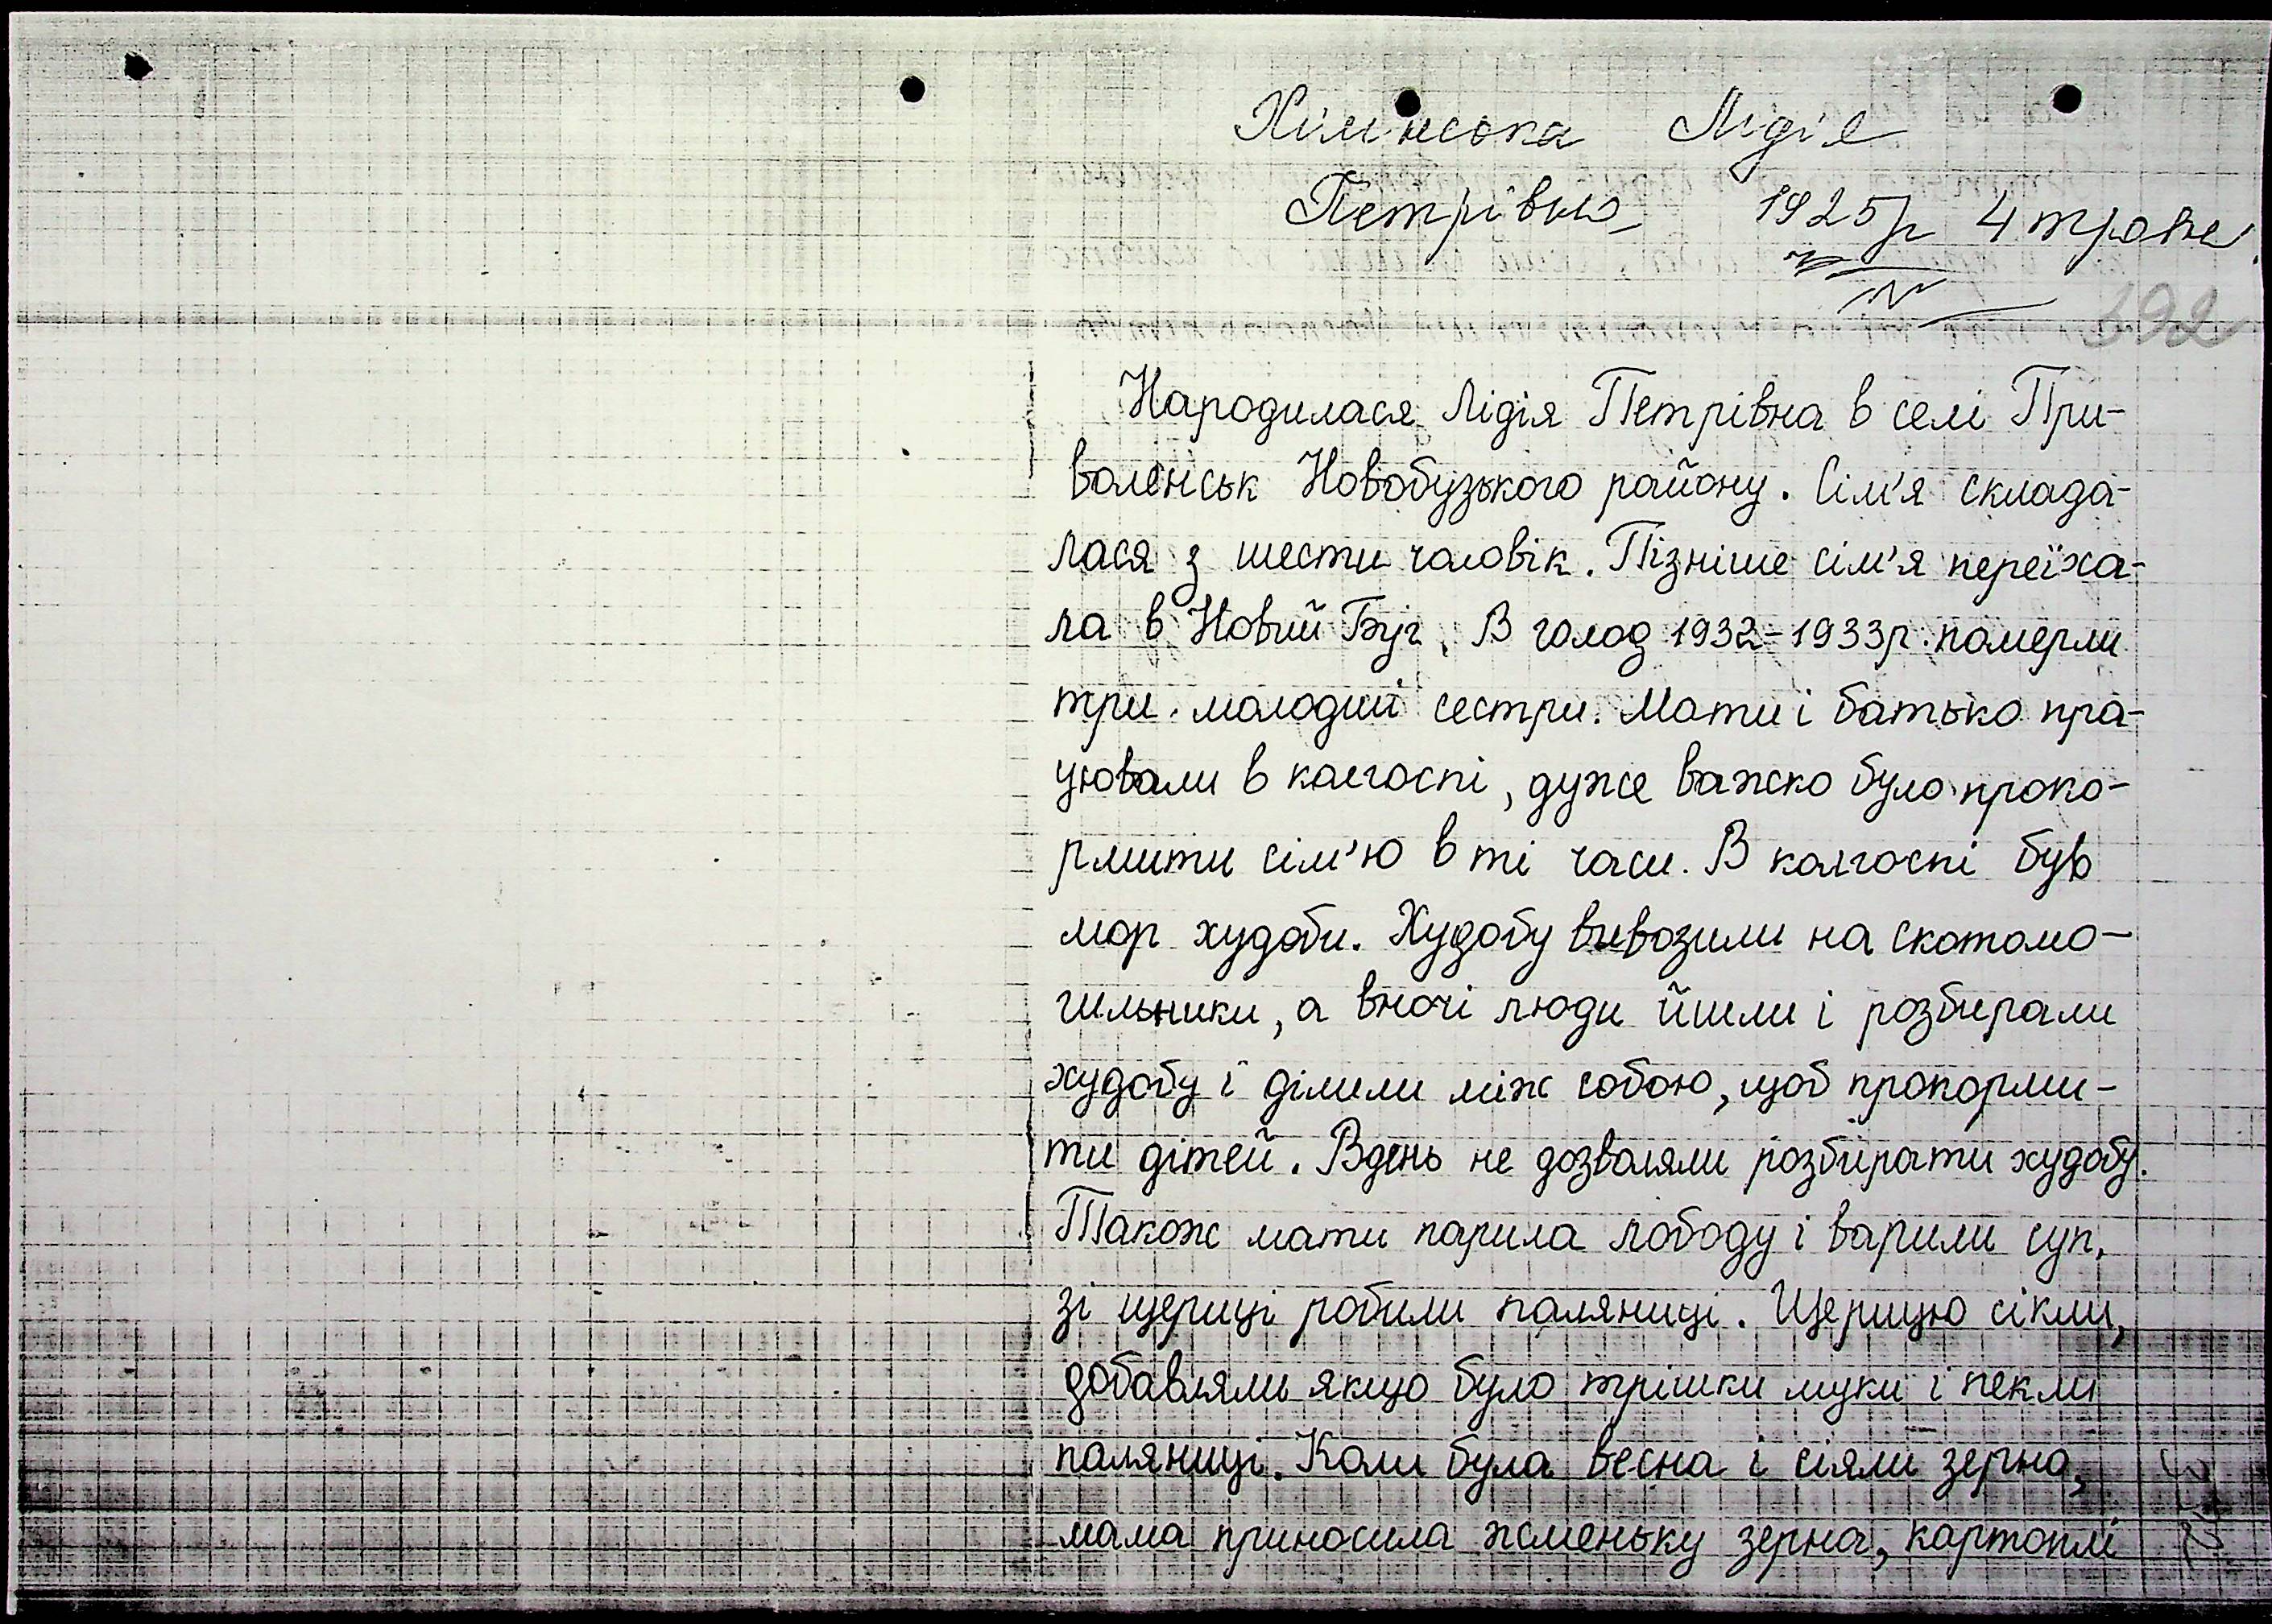 Хілінська Лідія
Петрівна 1925р 4 травня.
392
Народилася Лідія Петрівна в селі При-
воленськ Новобузького району. Сім'я склада-
лася з шести чоловік. Пізніше сім'я переїха-
ла в Новий Буг. В голод 1932-1933р. померли
три молодші сестри. Мати і батько пра-
цювали в колгоспі, дуже важко було проко-
рмити сім'ю в ті часи. В колгоспі був
мор худоби. Худобу вивозили на скотомо-
гильники, а вночі люди йшли і розбирали
худобу і ділили між собою, щоб прокорми-
ти дітей. Вдень не дозволяли розбирати худобу.
Також мати парила лободу і варили суп,
зі щериці робили паляниці. Щерицю сікли,
добавляли якщо було трішки муки і пекли
паляниці. Коли була весна і сіяли зерно,
мама приносила жменьку зерна, картоплі